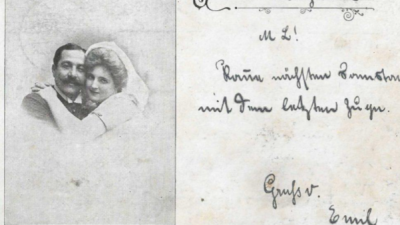 M L!
nächsten Sonnta
mit dem letzten Zuge.
Gruß v.
Emil